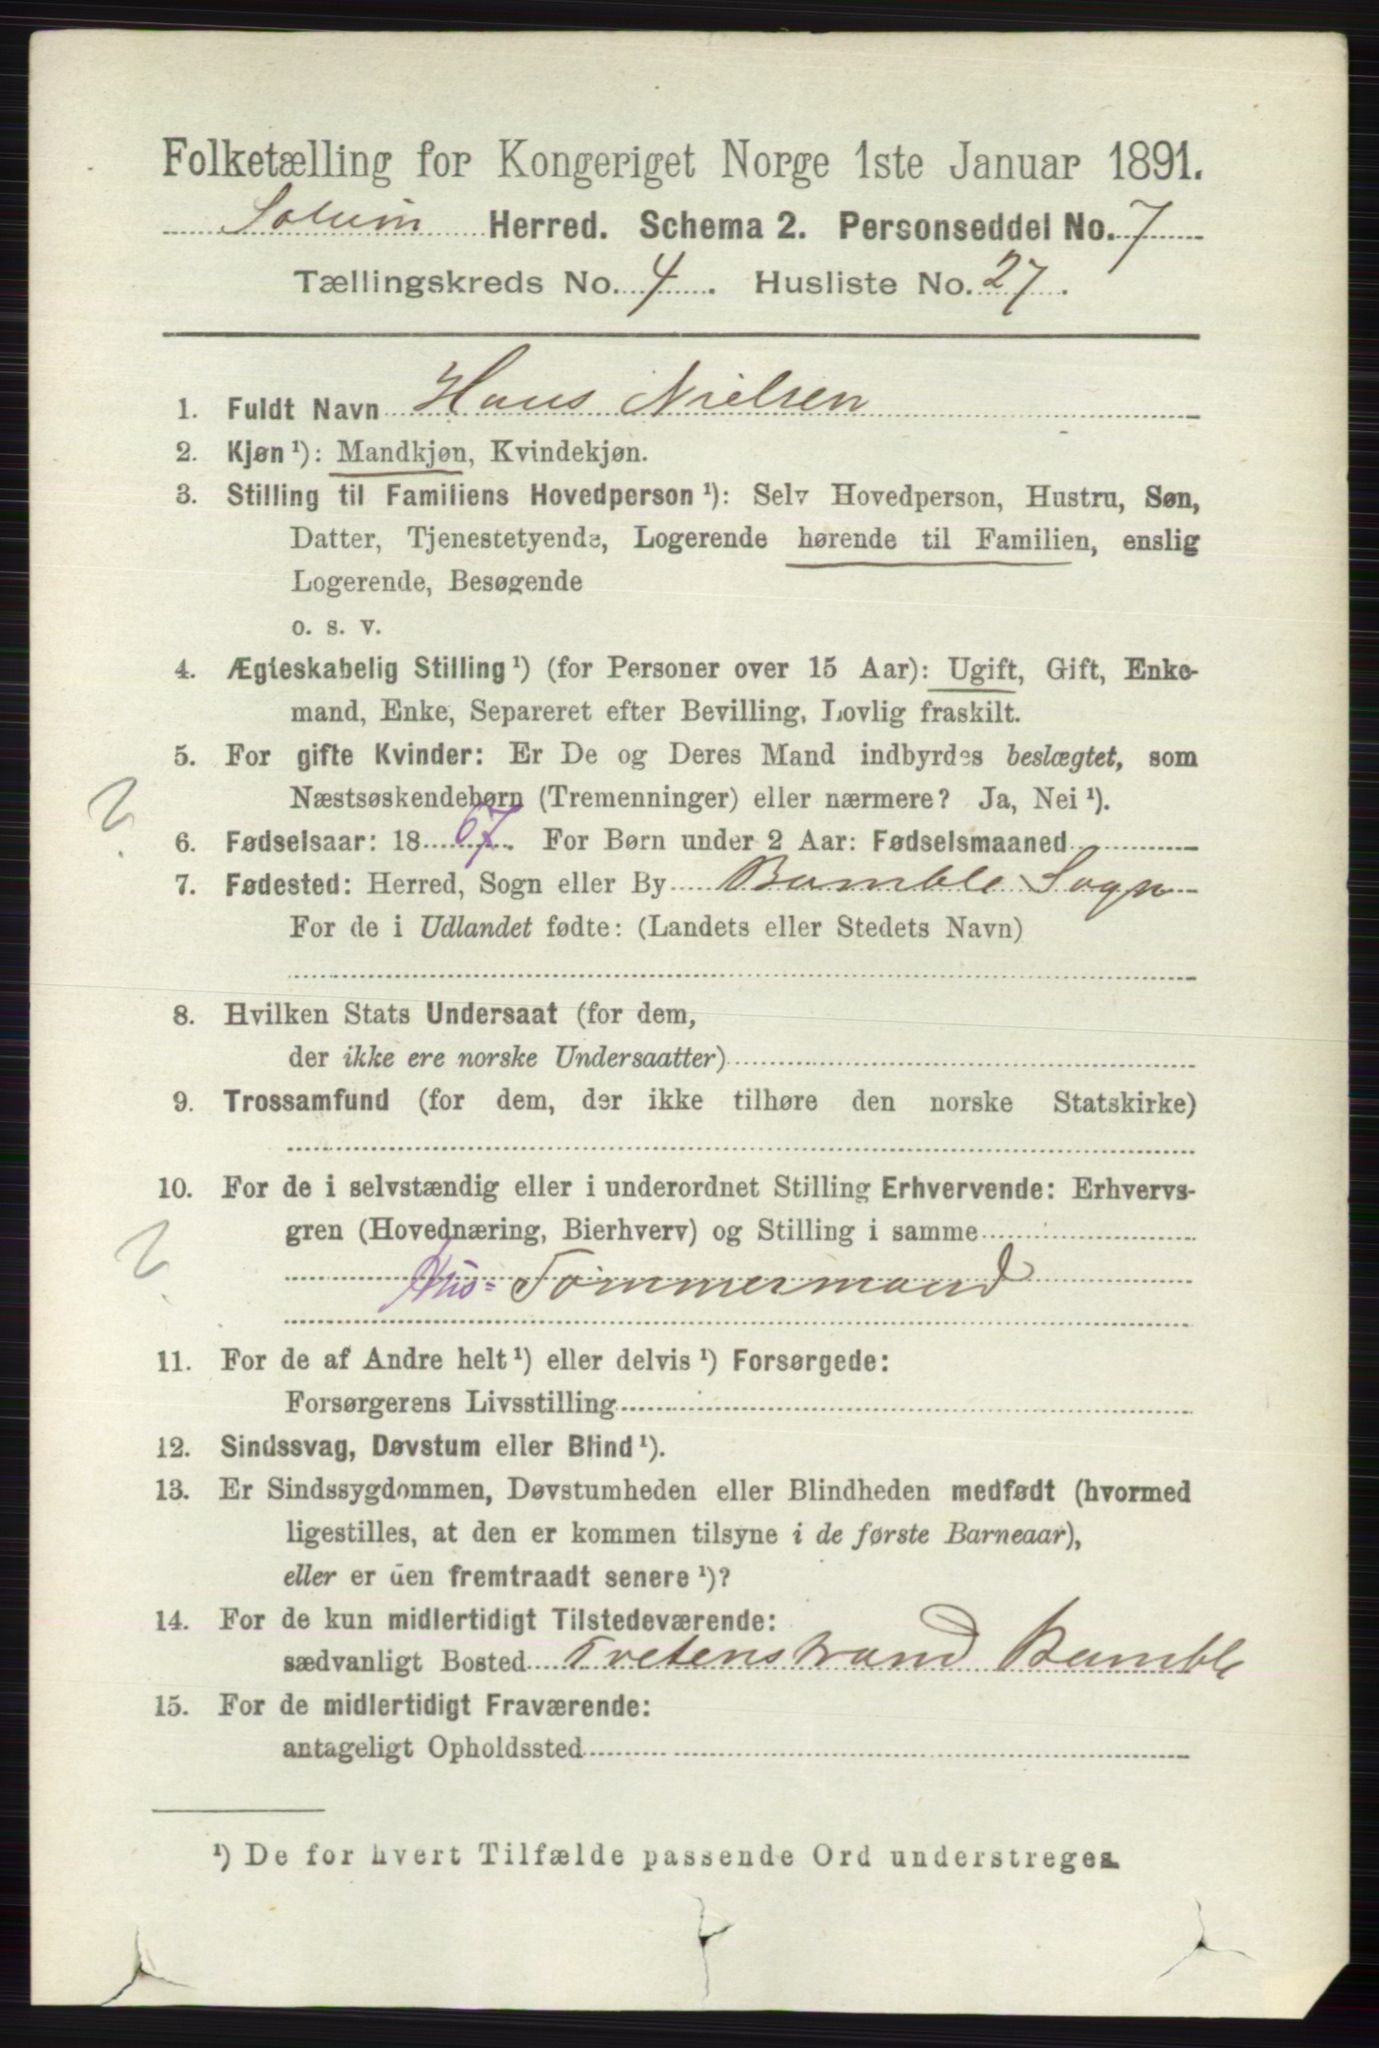 Folketælling for Kongeriget Norge 1ste Januar 1891.
Solum Herred. Schema 2. Personseddel No. 7
Tællingskreds No. 4. Husliste No. 27.
1. Fuldt Navn Hans Nielsen
2. Kjøn ¹): Mandkjøn, Kvindekjøn.
3. Stilling til Familiens Hovedperson ¹): Selv Hovedperson, Hustru, Søn,
Datter, Tjenestetyende, Logerende hørende til Familien, enslig
Logerende, Besøgende
o. s. v.
4. Ægteskabelig Stilling ¹) (for Personer over 15 Aar): Ugift, Gift, Enke-
mand, Enke, Separeret efter Bevilling, Lovlig fraskilt.
5. For gifte Kvinder: Er De og Deres Mand indbyrdes beslægtet, som
Næstsøskendebørn (Tremenninger) eller nærmere? Ja, Nei ¹).
6. Fødselsaar: 1867. For Børn under 2 Aar: Fødselsmaaned
7. Fødested: Herred, Sogn eller By Bamble Sogn
For de i Udlandet fødte: (Landets eller Stedets Navn)
8. Hvilken Stats Undersaat (for dem,
der ikke ere norske Undersaatter)
9. Trossamfund (for dem, der ikke tilhøre den norske Statskirke)
10. For de i selvstændig eller i underordnet Stilling Erhvervende: Erhvervs-
gren (Hovednæring, Bierhverv) og Stilling i samme
Hus- Tømmermand
11. For de af Andre helt ¹) eller delvis ¹) Forsørgede:
Forsørgerens Livsstilling
12. Sindssvag, Døvstum eller Blind ¹).
13. Er Sindssygdommen, Døvstumheden eller Blindheden medfødt (hvormed
ligestilles, at den er kommen tilsyne i de første Barneaar),
eller er den fremtraadt senere ¹)?
14. For de kun midlertidigt Tilstedeværende:
sædvanligt Bosted Tvetenstrand Bamble
15. For de midlertidigt Fraværende:
antageligt Opholdssted
¹) De for hvert Tilfælde passende Ord understreges.